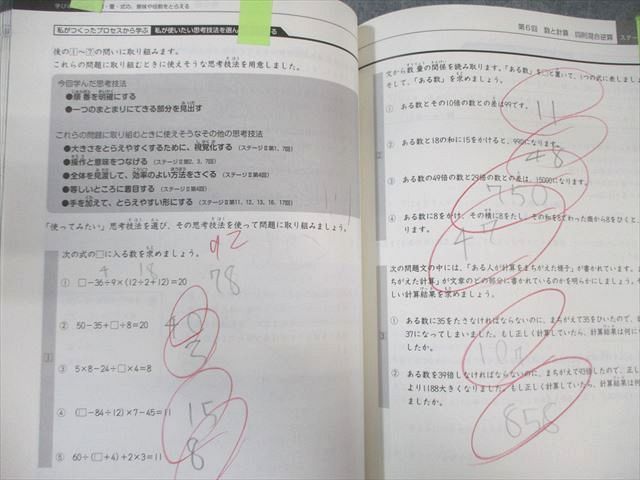 私がつくったプロセスから学ぶ
私が使いたい思考技法を選ん
後の①〜⑦の問いに取り組みます。
これらの問題に取り組むときに使えそうな思考技法を用意しました。
今回学んだ思考技法
●順番を明確にする
●一つのまとまりにできる部分を見出す
これらの問題に取り組むときに使えそうなその他の思考技法
●大きさをとらえやすくするために、視覚化する（ステージⅡ第1、7回）
●操作と意味をつなげる（ステージⅡ第2、3、7回）
●全体を見渡して、効率のよい方法をさぐる（ステージⅡ第4回）
●等しいところに着目する（ステージⅡ第4回）
●手を加えて、とらえやすい形にする（ステージⅡ第11、12、13、16、17回）
「使ってみたい」思考技法を選び、その思考技法を使って問題に取り組みましょう。
次の式の□に入る数を求めましょう。
4 18
① □－36÷9×(12÷2+12)＝20 78
② 50－35＋□÷8＝20 40
③ 5×8－24÷□×4＝8 3
④ (□－84÷12)×7－45＝11 15
⑤ 60÷(□＋4)＋2×3＝11 8
第6回 数と計算 四則混合逆算
文から数量の関係を読み取ります。「ある数」を□と置いて、1つの式に表しまし
そして、「ある数」を求めましょう。
① ある数とその10倍の数との差は99です。 11
② ある数と18の和に15をかけると、990になります。
48
③ ある数の49倍の数と29倍の数との差は、15000になります。
750
④ ある数に8をかけ、その積に8をたし、その和を8でわった商から8をひくと、
ります。
47
次の問題文の中には、「ある人が計算をまちがえた様子」が書かれています。
ちがえた計算」が文章のどの部分に書かれているのかを明らかにしましょう。
しい計算結果を求めましょう。
① ある数に35をたさなければならないのに、まちがえて35をひいたので、
37になってしまいました。もし正しく計算していたら、計算結果は何に
したか。
107
② ある数を39倍しなければならないのに、まちがえて93倍したので、正し
より1188大きくなりました。もし正しく計算していたら、計算結果は何
ましたか。
858